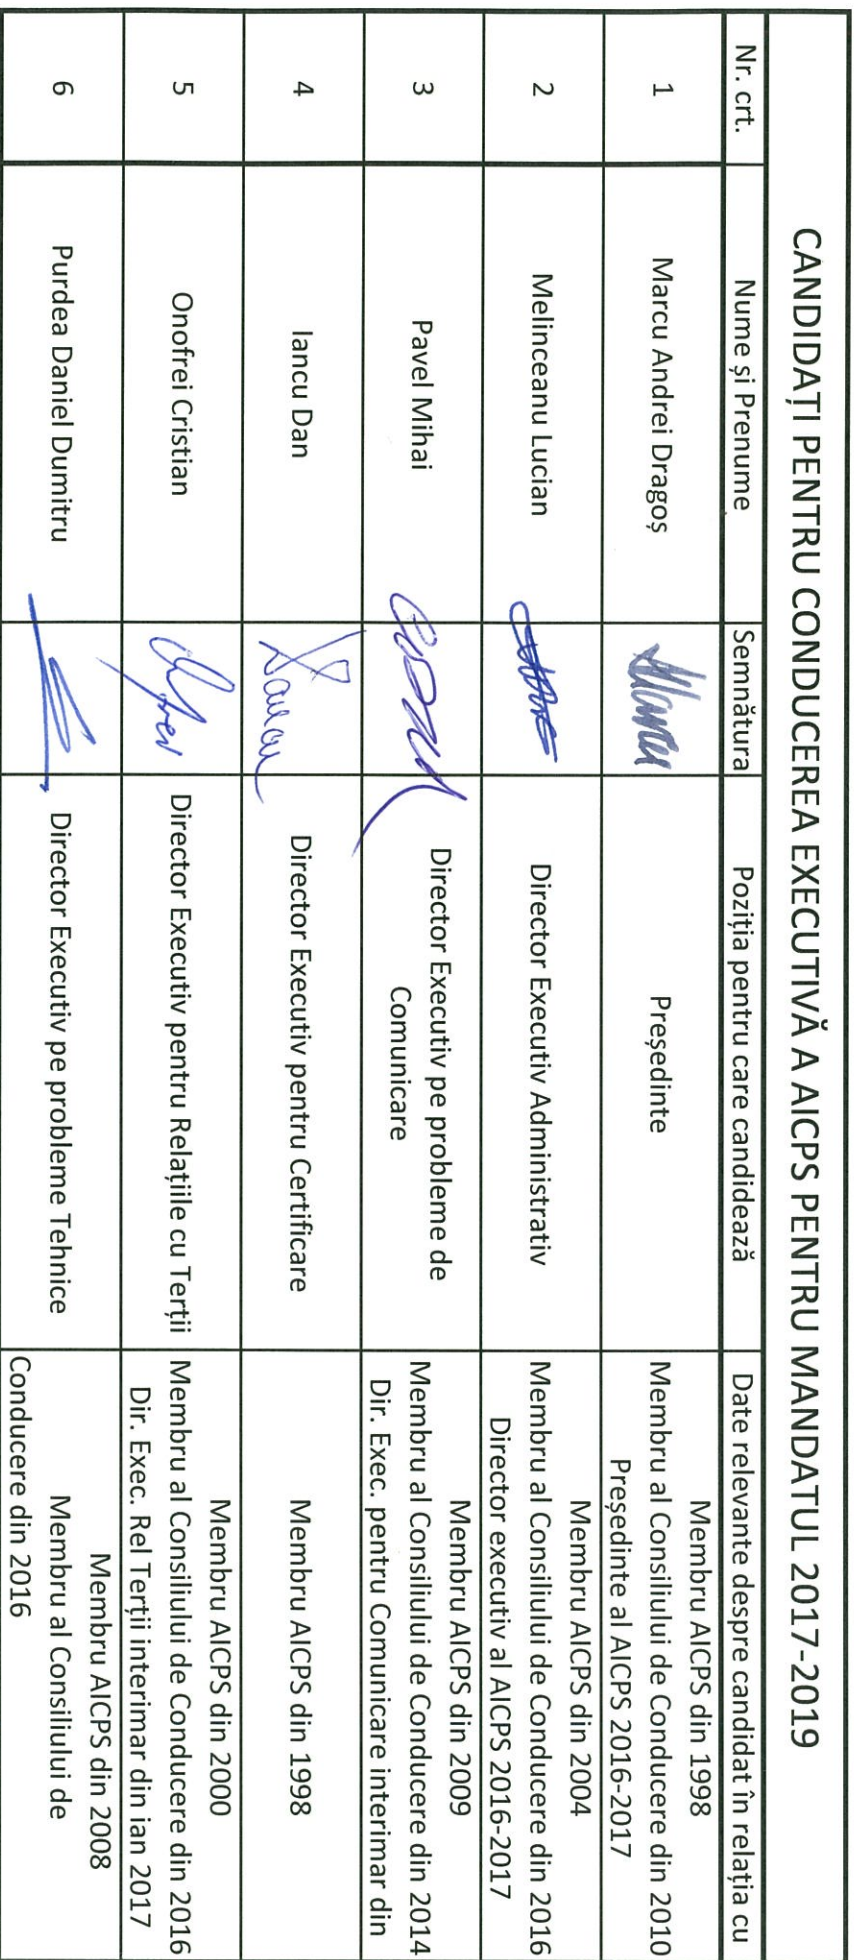 CANDIDAȚI PENTRU CONDUCEREA EXECUTIVĂ A AICPS PENTRU MANDATUL 2017-2019
Nr. crt. Nume și Prenume Semnătura Poziția pentru care candidează Date relevante despre candidat în relația cu
1 Marcu Andrei Dragoș Președinte
Membru AICPS din 1998
Membru al Consiliului de Conducere din 2010
Președinte al AICPS 2016-2017
2 Melinceanu Lucian Director Executiv Administrativ
Membru AICPS din 2004
Membru al Consiliului de Conducere din 2016
Director executiv al AICPS 2016-2017
3 Pavel Mihai
Director Executiv pe probleme de
Comunicare
Membru AICPS din 2009
Membru al Consiliului de Conducere din 2014
Dir. Exec. pentru Comunicare interimar din
4 Iancu Dan Director Executiv pentru Certificare Membru AICPS din 1998
5 Onofrei Cristian Director Executiv pentru Relațiile cu Terții
Membru AICPS din 2000
Membru al Consiliului de Conducere din 2016
Dir. Exec. Rel Terții interimar din ian 2017
6 Purdea Daniel Dumitru Director Executiv pe probleme Tehnice
Membru AICPS din 2008
Membru al Consiliului de
Conducere din 2016